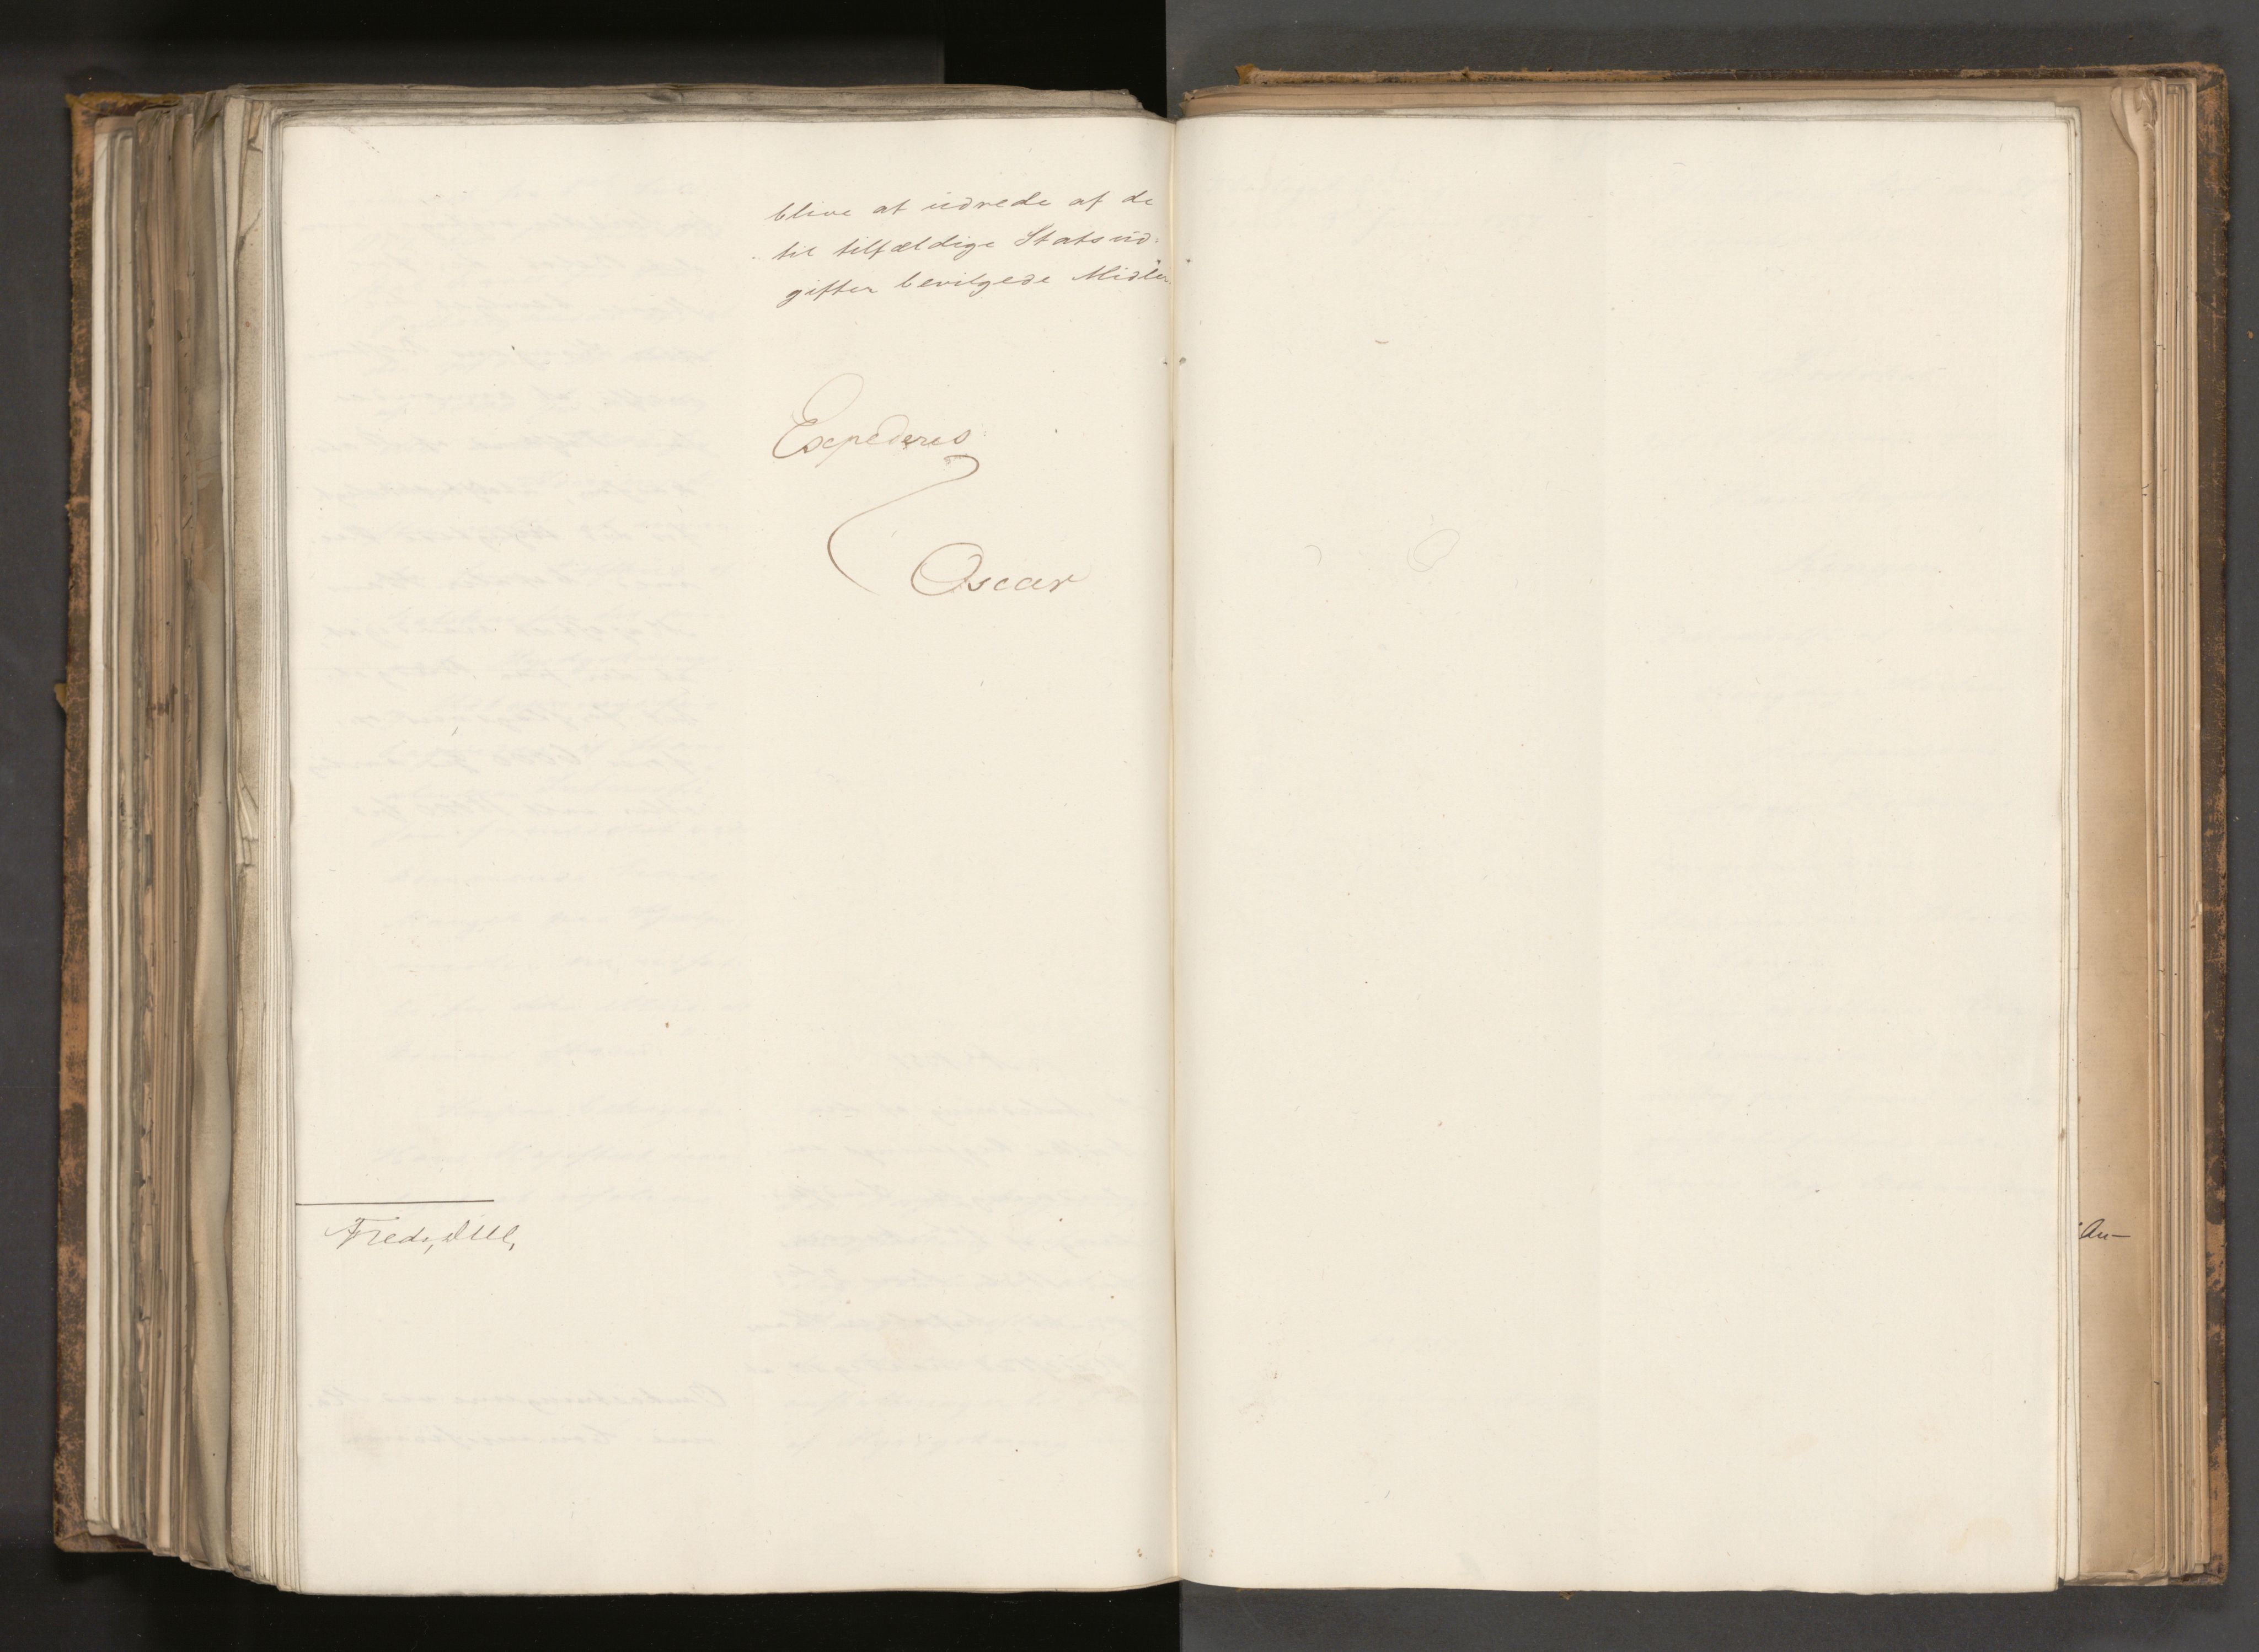 blive at udrede af de
til tilfældige Statsud:
gifter bevilgede Midler.
Expederes
Oscar
Fredr, Due,